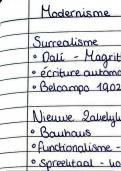 Modernisme
Surrealisme
• Dalí - Magrit
• écriture automa
• Belcampo 1902
Nieuwe Zakelijk
• Bauhaus
• functionalisme -
• Spreektaal -